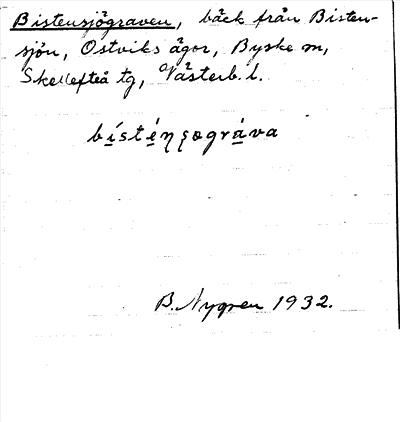 Bistensjögraven, bäck från Bisten-
sjön, Ostviks ägor, Byske m,
Skellefteå tg, Västerb. l.
bi̱sté̱ŋʂográ̱va
B. Nygren 1932.